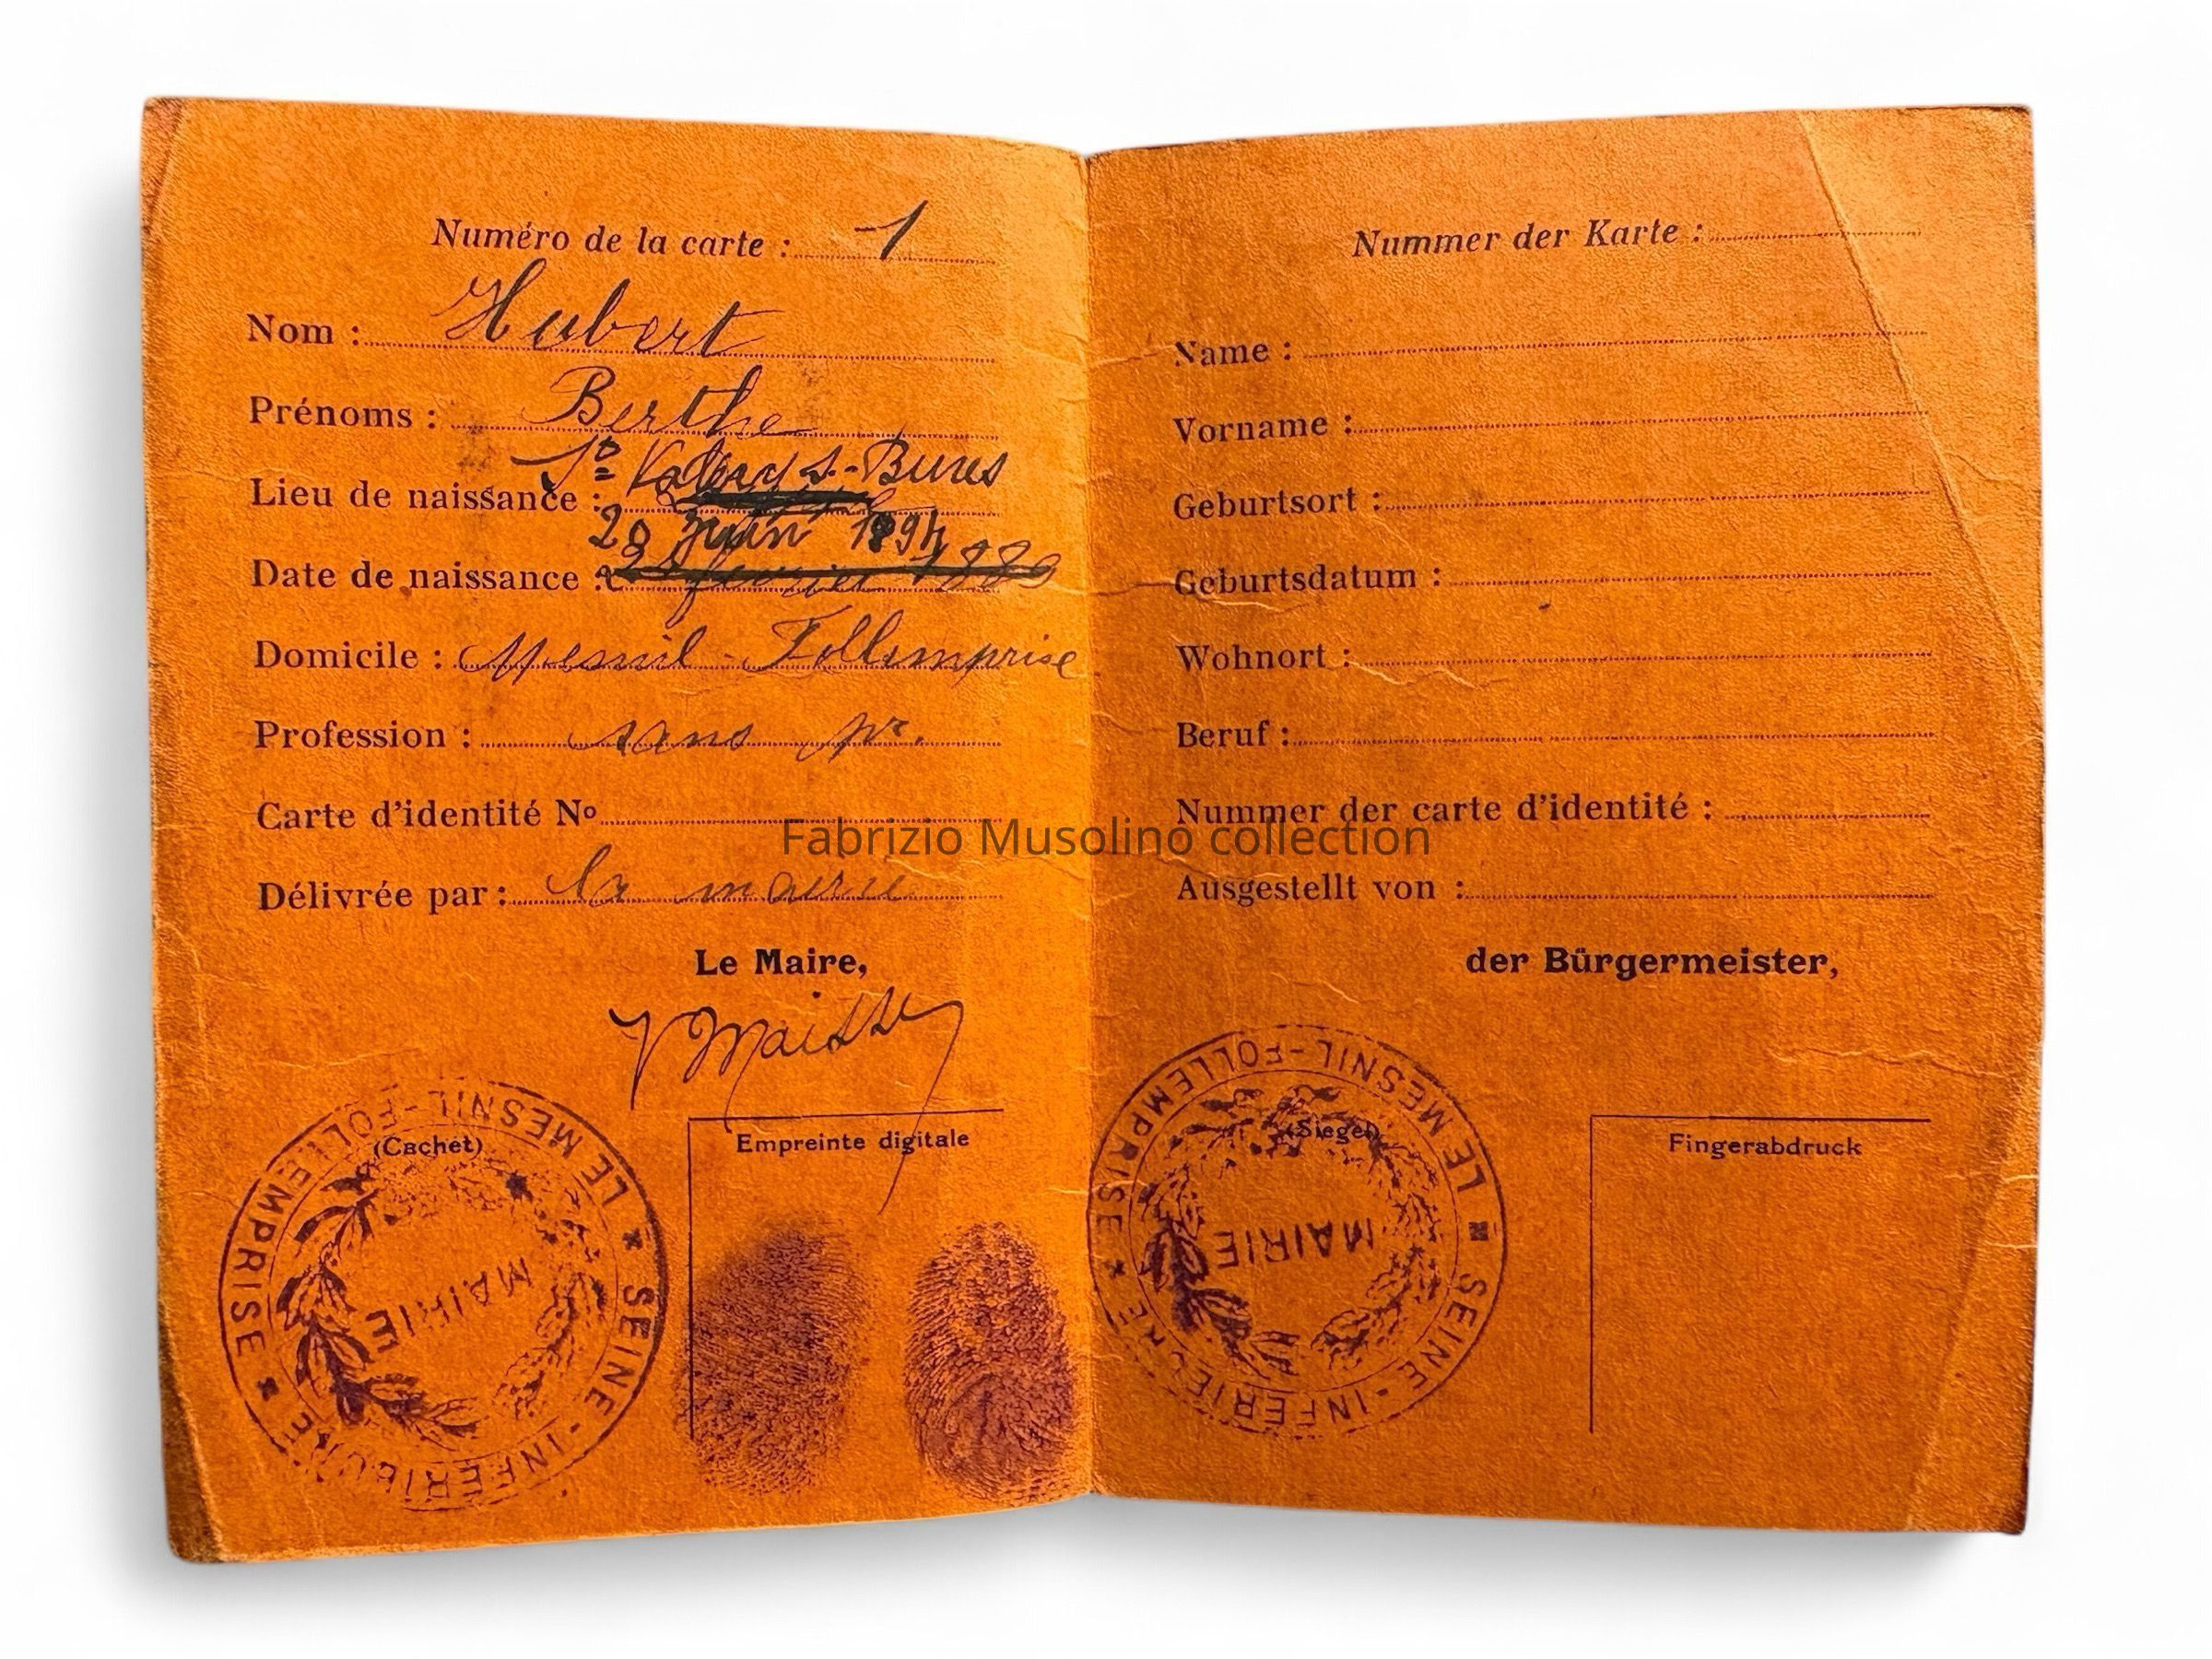 Numéro de la carte : 1
Nom : Hubert
Prénoms : Berthe
St Valery s-Bures
Lieu de naissance :
20 juin 1894
Date de naissance : 23 février 1889
Domicile : Mesnil-Follemprise
Profession : sans pr.
Carte d'identité No
Délivrée par : la mairie
Le Maire,
(Cachet)
LE MESNIL-FOLLEMPRISE
MAIRIE
SEINE-INFERIEURE
Empreinte digitale
Nummer der Karte :
Name :
Vorname :
Geburtsort :
Geburtsdatum :
Wohnort :
Beruf :
Nummer der carte d'identité :
Ausgestellt von :
der Bürgermeister,
(Siegel)
LE MESNIL-FOLLEMPRISE
MAIRIE
SEINE-INFERIEURE
Fingerabdruck
Fabrizio Musolino collection